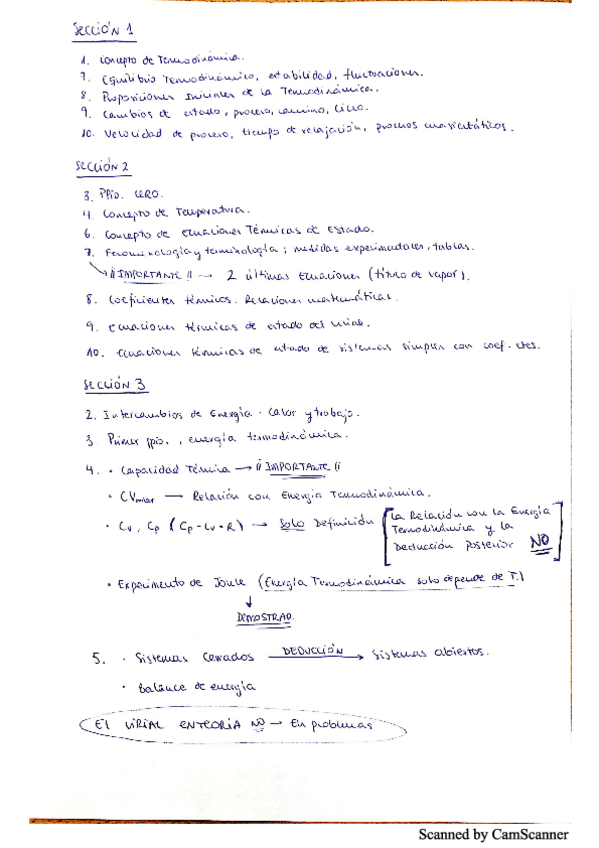 SECCIÓN 1
1. Concepto de Termodinámica.
7. Equilibrio Termodinámico, estabilidad, fluctuaciones.
8. Proposiciones Iniciales de la Termodinámica.
9. Cambios de estado, proceso, camino, ciclo.
10. Velocidad de proceso, tiempo de relajación, procesos cuasiestáticos.
SECCIÓN 2
3. PPio. CERO.
4. Concepto de Temperatura.
6. Concepto de ecuaciones Térmicas de estado.
7. Fenomenología y terminología; medidas experimentales, tablas.
¡¡IMPORTANTE!! → 2 últimas Ecuaciones (título de vapor).
8. Coeficientes térmicos. Relaciones matemáticas.
9. Ecuaciones térmicas de estado del virial.
10. Ecuaciones térmicas de estado de sistemas simples con coef. ctes.
SECCIÓN 3
2. Intercambios de Energía. Calor y trabajo.
3 Primer ppio., energía termodinámica.
4. • Capacidad Térmica → ¡¡IMPORTANTE!!
• CVmolar — Relación con Energía Termodinámica.
• Cv, Cp (Cp-Cv=R) → Solo Definición [La Relación con la Energía
Termodinámica y la
Deducción Posterior NO]
• Experimento de Joule (Energía Termodinámica solo depende de T.)
↓
DEMOSTRAR
5. • Sistemas Cerrados DEDUCCIÓN → Sistemas abiertos.
• Balance de energía
El VIRIAL EN TEORIA NO → En problemas
Scanned by CamScanner